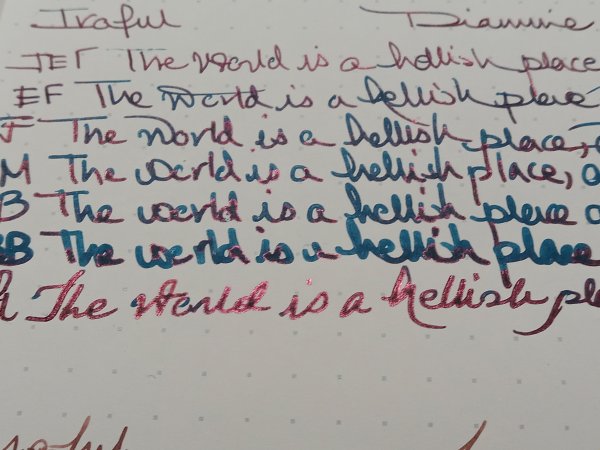 Iraful Diamine
JEF The world is a hellish place
EF The world is a hellish place
F The world is a hellish place,
M The world is a hellish place, a
B The world is a hellish place a
BB The world is a hellish place
The world is a hellish pla